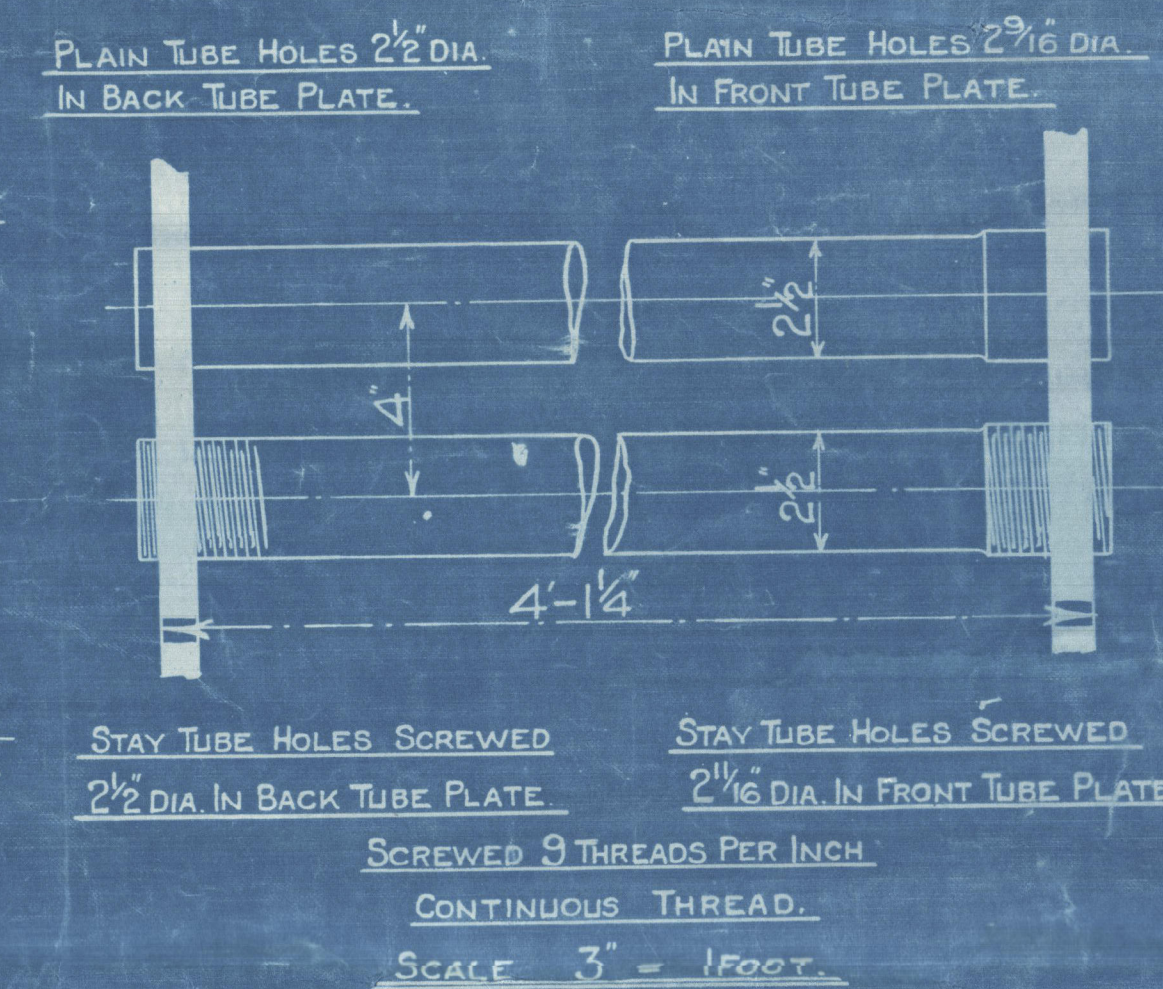 PLAIN TUBE HOLES 2½" DIA.
IN BACK TUBE PLATE.
PLAIN TUBE HOLES 2 9/16" DIA.
IN FRONT TUBE PLATE.
2½"
4"
2½"
4'-1¼"
STAY TUBE HOLES SCREWED
2½" DIA. IN BACK TUBE PLATE.
STAY TUBE HOLES SCREWED
2 11/16" DIA. IN FRONT TUBE PLATE
SCREWED 9 THREADS PER INCH
CONTINUOUS THREAD.
SCALE 3" = 1 FOOT.